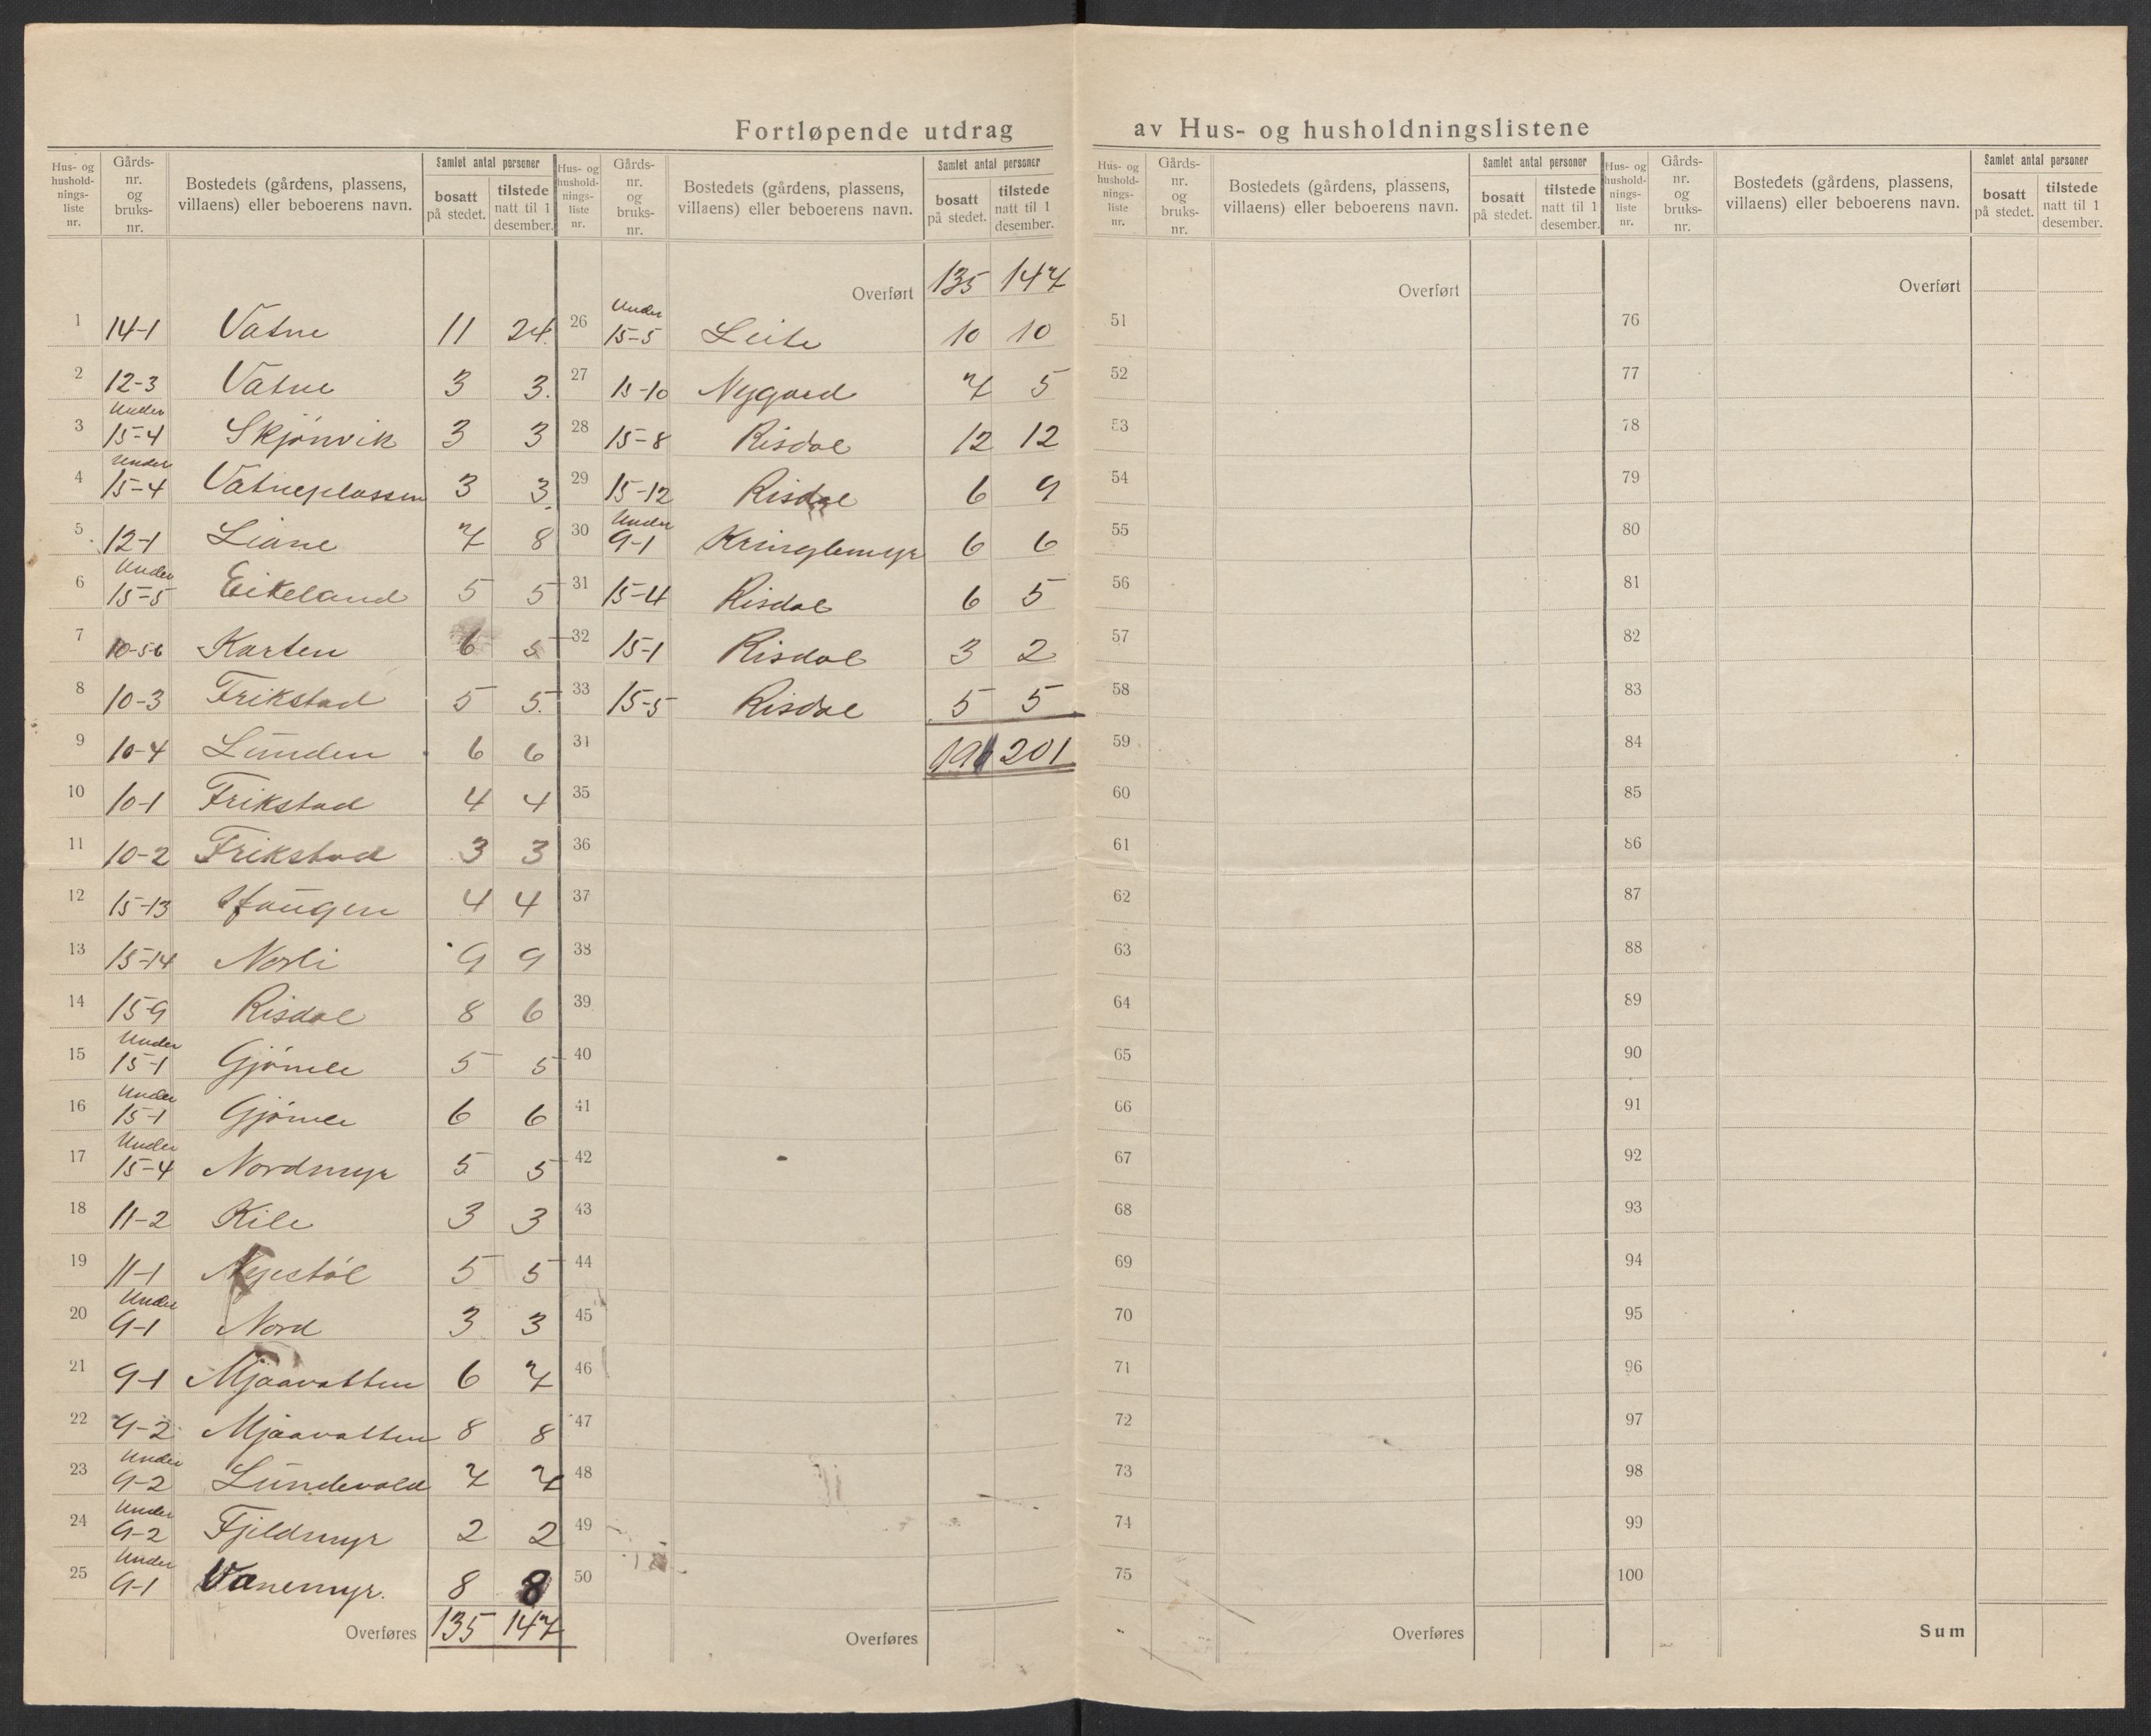 Fortløpende utdrag av Hus- og husholdningslistene
Hus- og hushold- nings- liste nr. | Gårds- nr. og bruks- nr. | Bostedets (gårdens, plassens, villaens) eller beboerens navn. | Samlet antal personer | bosatt på stedet. | tilstede natt til 1 desember.
1 14-1 Vatne 11 24.
2 12-3 Vatne 3 3.
3 Under 15-4 Skjönvik 3 3
4 Under 15-4 Vatneplassen 3 3.
5. 12-1 Liane 7 8
6 Under 15-5 Eikeland 5 5
7 10-5-6 Karten 6 5
8 10-3 Frikstad 5 5.
9 10-4 Lunden 6 6
10 10-1 Frikstad 4 4
11 10-2 Frikstad 3 3
12 15-13 Haugen 4 4
13 15-14 Norli 9 9
14 15-9 Risdal 8 6
15 Under 15-1 Gjömle 5 5
16 Under 15-1 Gjömle 6 6
17 Under 15-4 Nordmyr 5 5
18 11-2 Kile 3 3
19 11-1 Nyestöl 5 5
20 Under 9-1 Nord 3 3
21 9-1 Mjaavatten 6 7
22 9-2 Mjaavatten 8 8
23 Under 9-2 Lundevold 7 7
24 Under 9-2 Fjeldmyr 2 2
25 Under 9-1 Vanemyr. 8 8
Overføres 135 147
Hus- og hushold- nings- liste nr. | Gårds- nr. og bruks- nr. | Bostedets (gårdens, plassens, villaens) eller beboerens navn. | Samlet antal personer | bosatt på stedet. | tilstede natt til 1 desember.
Overført 135 147
26 Under 15-5 Leite 10 10
27 15-10 Nygard 7 5
28 15-8 Risdal 12 12
29 15-12 Risdal 6 9
30 Under 9-1 Kringlemyr 6 6
31 15-4 Risdal 6 5
32 15-1 Risdal 3 2
33 15-5 Risdal 5 5
34 201
35
36
37
38
39
40
41
42
43
44
45
46
47
48
49
50
Overføres
Hus- og hushold- nings- liste nr. | Gårds- nr. og bruks- nr. | Bostedets (gårdens, plassens, villaens) eller beboerens navn. | Samlet antal personer | bosatt på stedet. | tilstede natt til 1 desember.
Overført
51
52
53
54
55
56
57
58
59
60
61
62
63
64
65
66
67
68
69
70
71
72
73
74
75
Overføres
Hus- og hushold- nings- liste nr. | Gårds- nr. og bruks- nr. | Bostedets (gårdens, plassens, villaens) eller beboerens navn. | Samlet antal personer | bosatt på stedet. | tilstede natt til 1 desember.
Overført
76
77
78
79
80
81
82
83
84
85
86
87
88
89
90
91
92
93
94
95
96
97
98
99
100
Sum